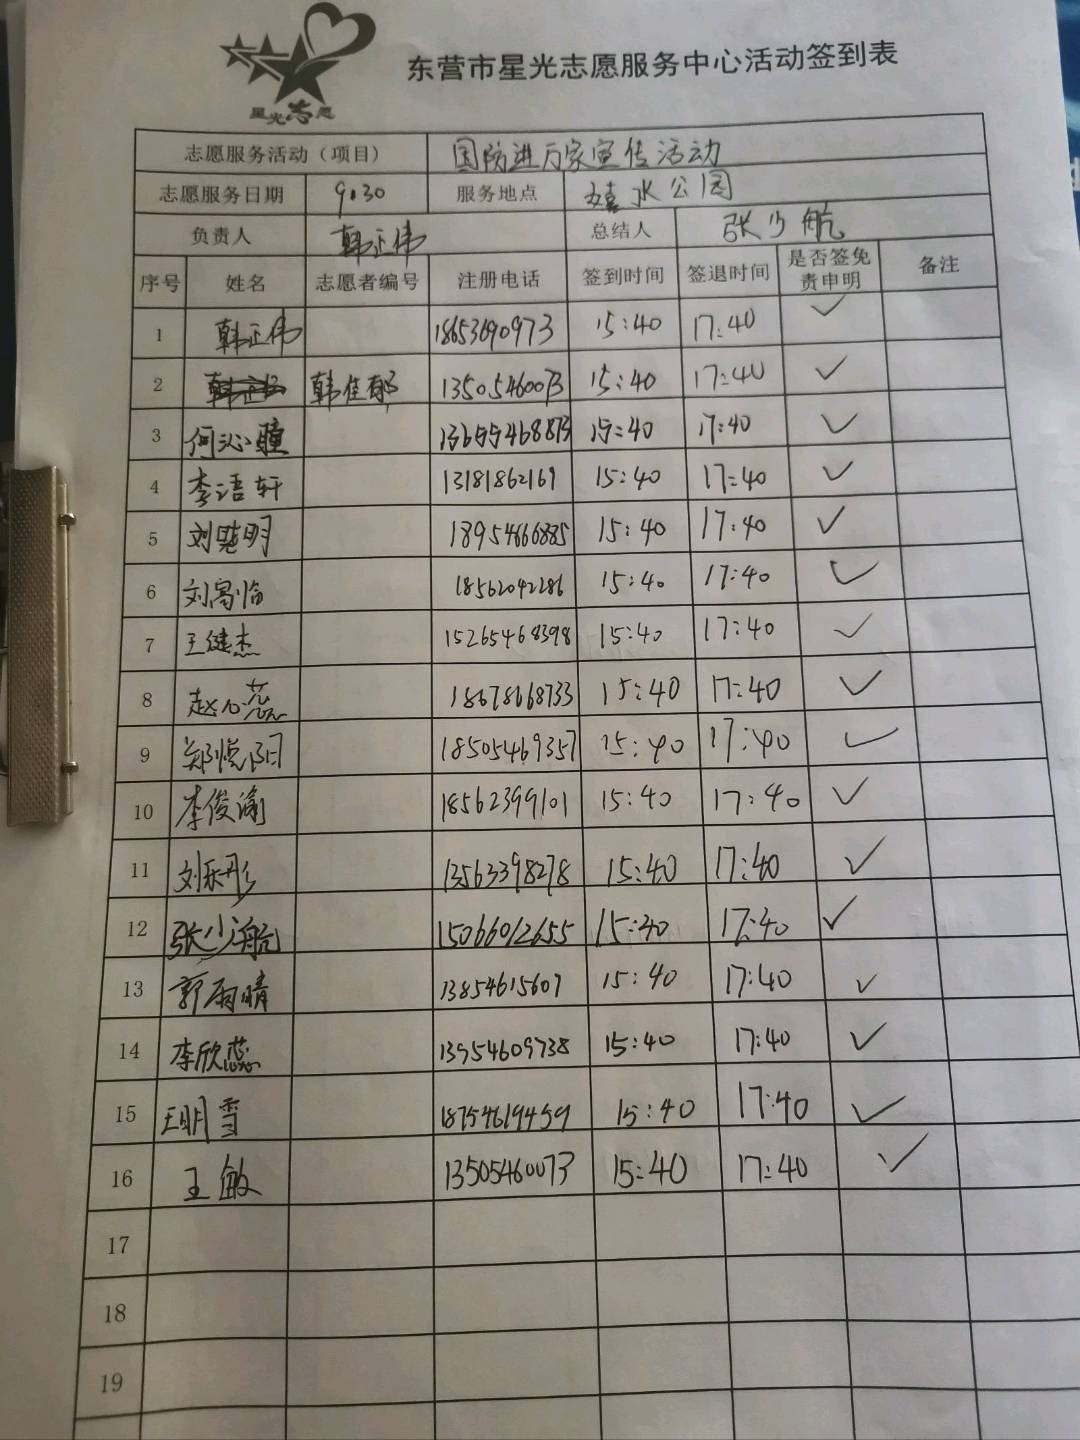 星光志愿
东营市星光志愿服务中心活动签到表
志愿服务活动（项目） 国防进万家宣传活动
志愿服务日期 9.30 服务地点 水公园
负责人 韩正伟 总结人 张少航
序号 姓名 志愿者编号 注册电话 签到时间 签退时间 是否签免责申明 备注
1 韩正伟 18653690973 15:40 17:40 ✓
2 韩佳郁 13505460073 15:40 17:40 ✓
3 何沁瞳 13655468873 15:40 17:40 ✓
4 李语轩 13181862169 15:40 17:40 ✓
5 刘楚明 18954666885 15:40 17:40 ✓
6 刘 临 18562042286 15:40 17:40 ✓
7 王健杰 15265468398 15:40 17:40 ✓
8 赵心蕊 18678668733 15:40 17:40 ✓
9 郑悦阳 18505469357 15:40 17:40 ✓
10 李俊渝 18562399101 15:40 17:40 ✓
11 刘乐彤 13563398278 15:40 17:40 ✓
12 张少航 15066012655 15:40 17:40 ✓
13 郭雨晴 13854615607 15:40 17:40 ✓
14 李欣蕊 13954609738 15:40 17:40 ✓
15 王明雪 18754619459 15:40 17:40 ✓
16 王敏 13505460073 15:40 17:40 ✓
17
18
19